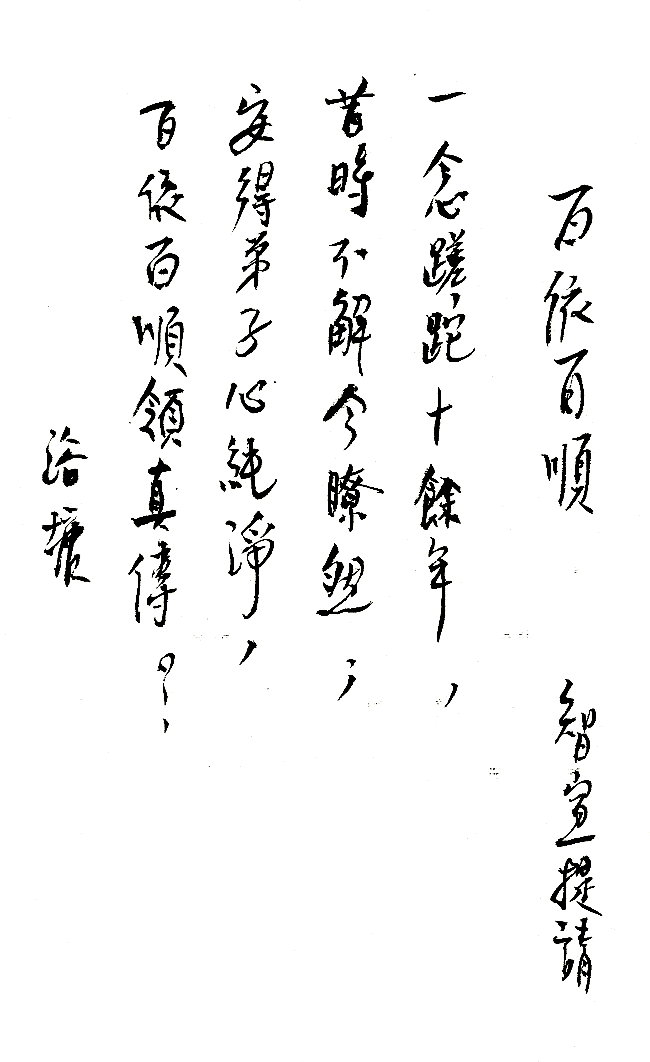 百依百順　智宣提請
一念蹉跎十餘年，
昔時不解今瞭然；
安得弟子心純淨，
百依百順領真傳？
浴塵